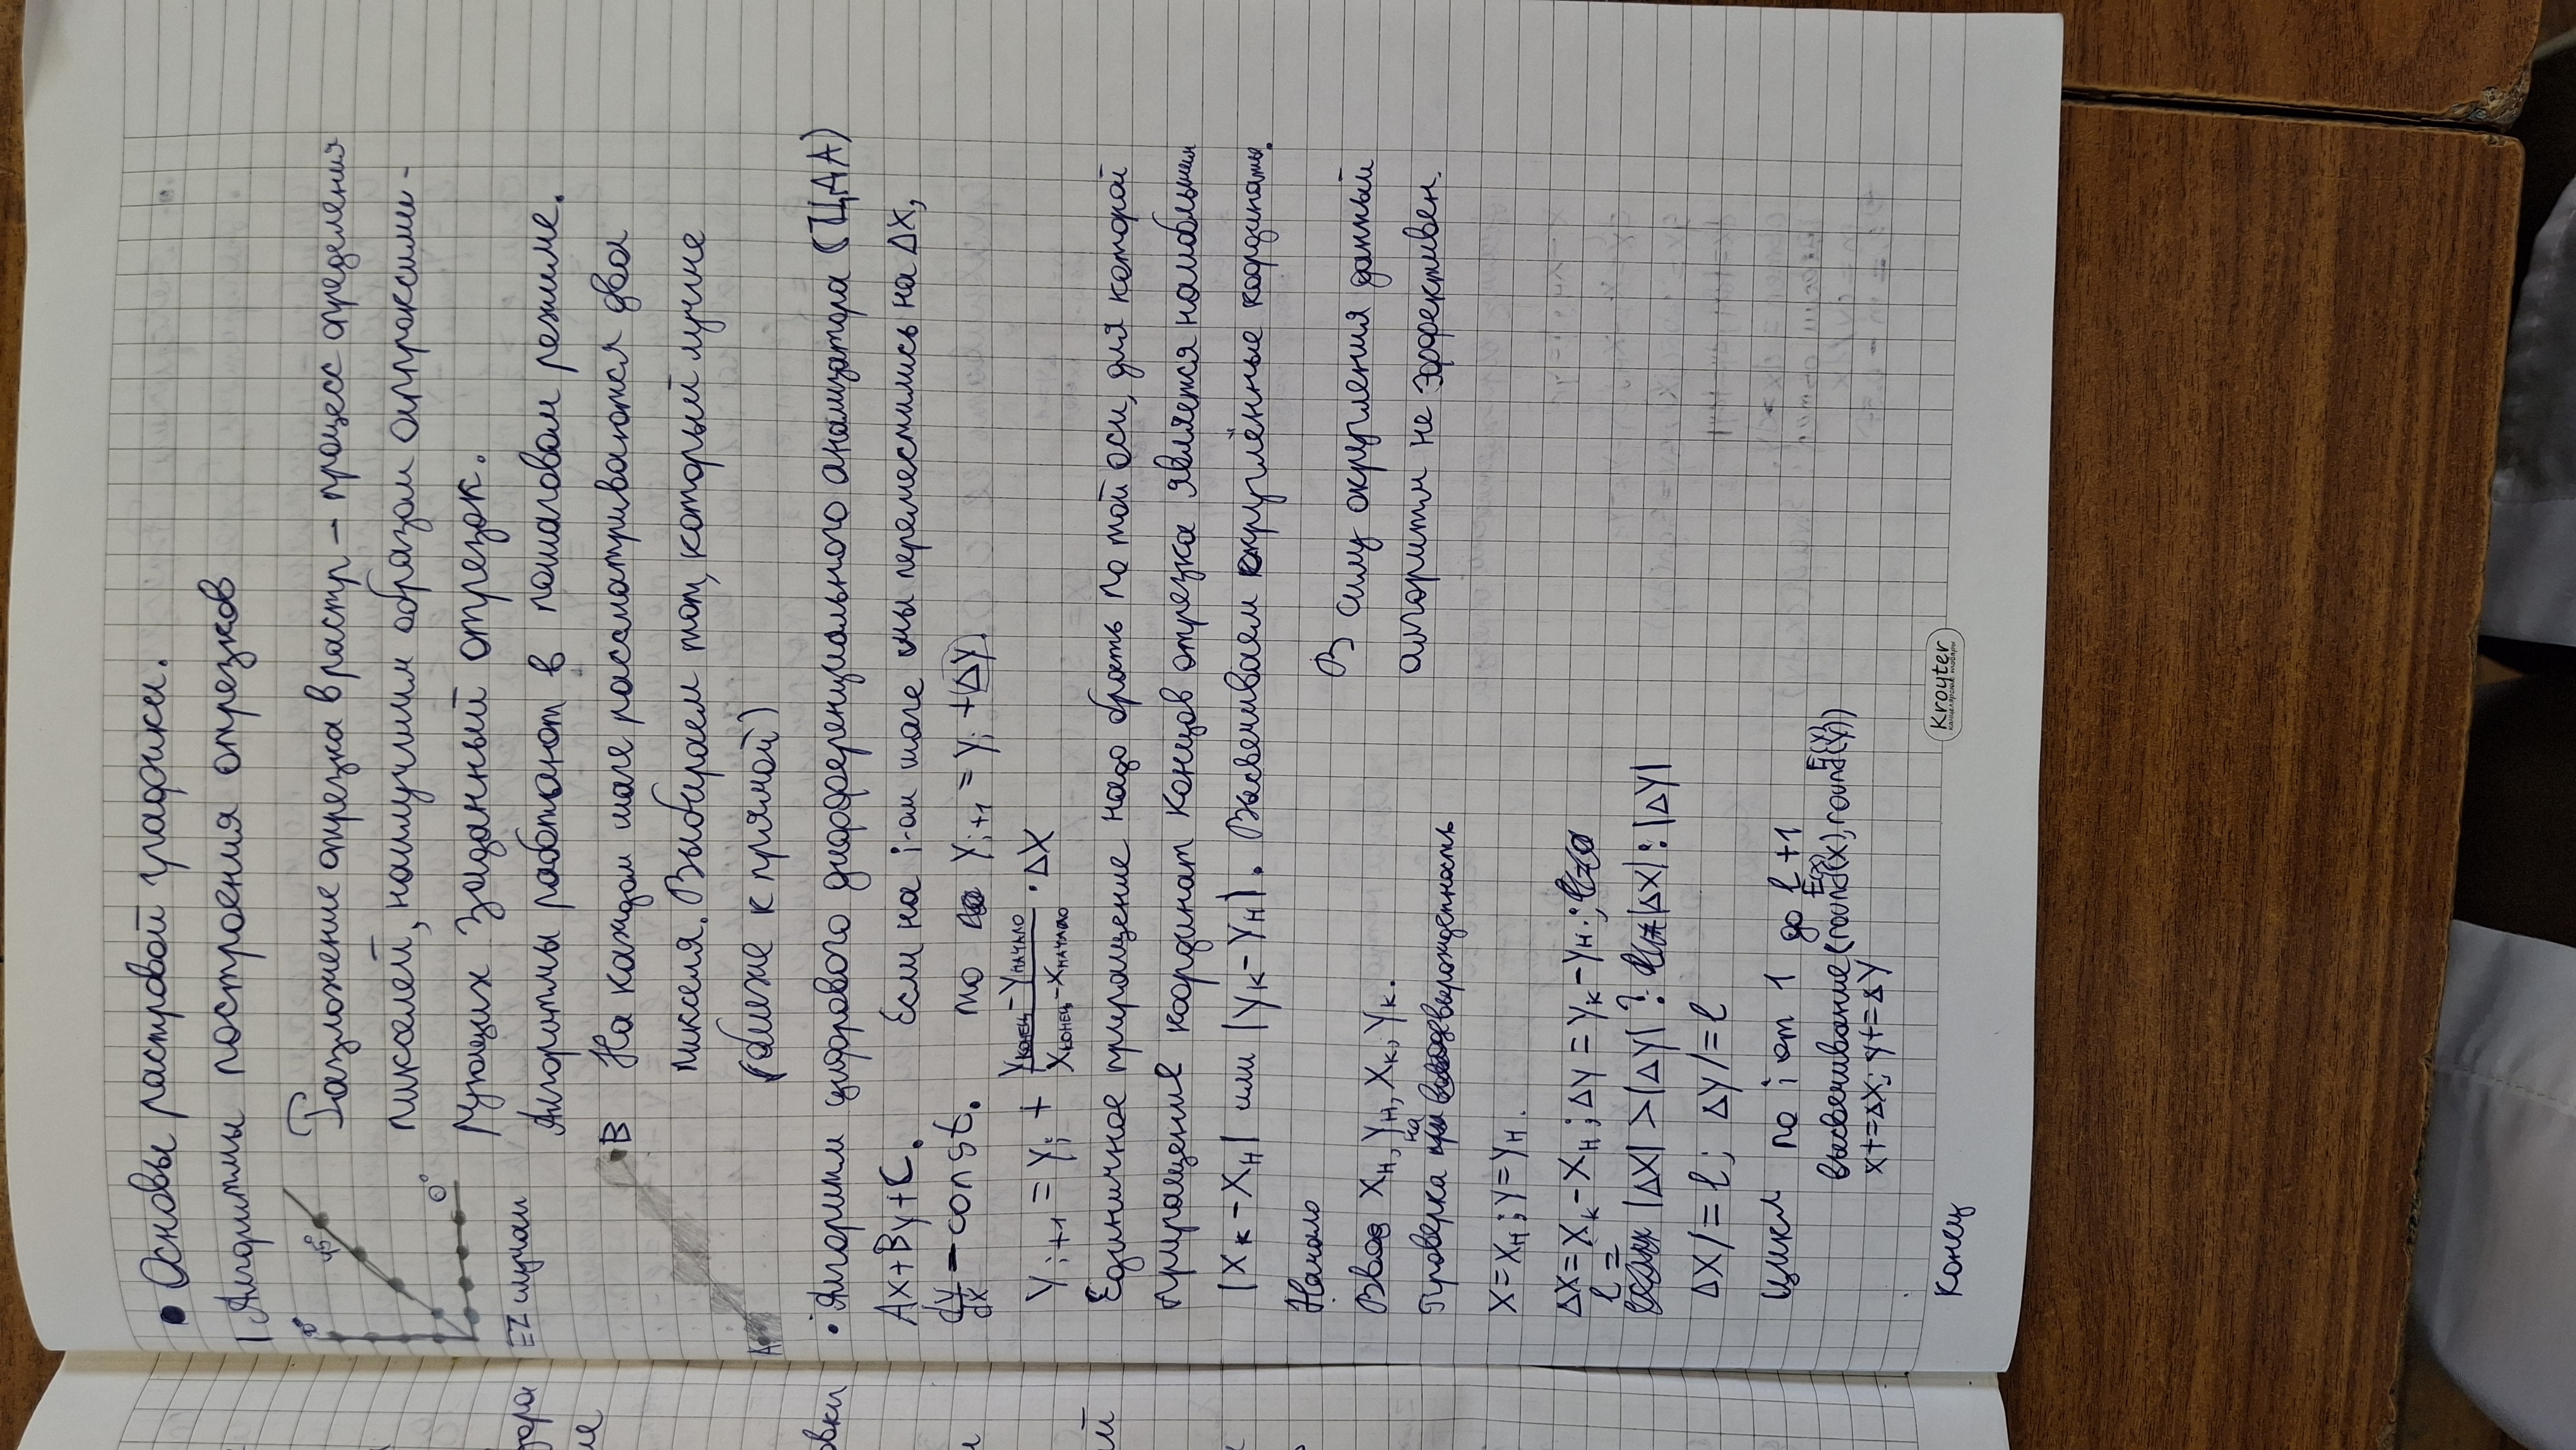 • Основы растровой графики.
1 Алгоритмы построения отрезков
45°
0°
EZ случаи
Разложение отрезка в растр – процесс определения
пикселей, наилучшим образом аппроксими-
рующих заданный отрезок.
Алгоритмы работают в пошаговом режиме.
B
A
На каждом шаге рассматриваются два
пикселя. Выбираем тот, который лучше
(ближе к прямой)
• Алгоритм цифрового дифференциального анализатора (ЦДА)
Ax+By+C.
Если на i-ом шаге мы переместились на ΔX,
dy/dx = const.
то y_{i+1} = y_i + Δy.
y_{i+1} = y_i + (y_КОНЕЦ – y_НАЧАЛО)/(x_КОНЕЦ – x_НАЧАЛО) · ΔX
Единичное приращение надо брать по той оси, для которой
приращение координат концов отрезка является наибольшим
|X_К – X_Н| или |y_К – y_Н|. Высвечиваем округлённые координаты.
Начало
Ввод X_Н, y_Н, X_К, y_К.
Проверка на вырожденность
X = X_Н; y = y_Н.
ΔX = X_К – X_Н; Δy = y_К – y_Н;
l =
|ΔX| > |Δy| ? |ΔX| : |Δy|
ΔX /= l; Δy /= l
цикл по i от 1 до l+1
E(x) E(y)
высвечивание (round(x), round(y))
x += ΔX; y += Δy
Конец
В силу округления данный
алгоритм не эффективен.
Kroyter
канцелярские товары
овки
ий